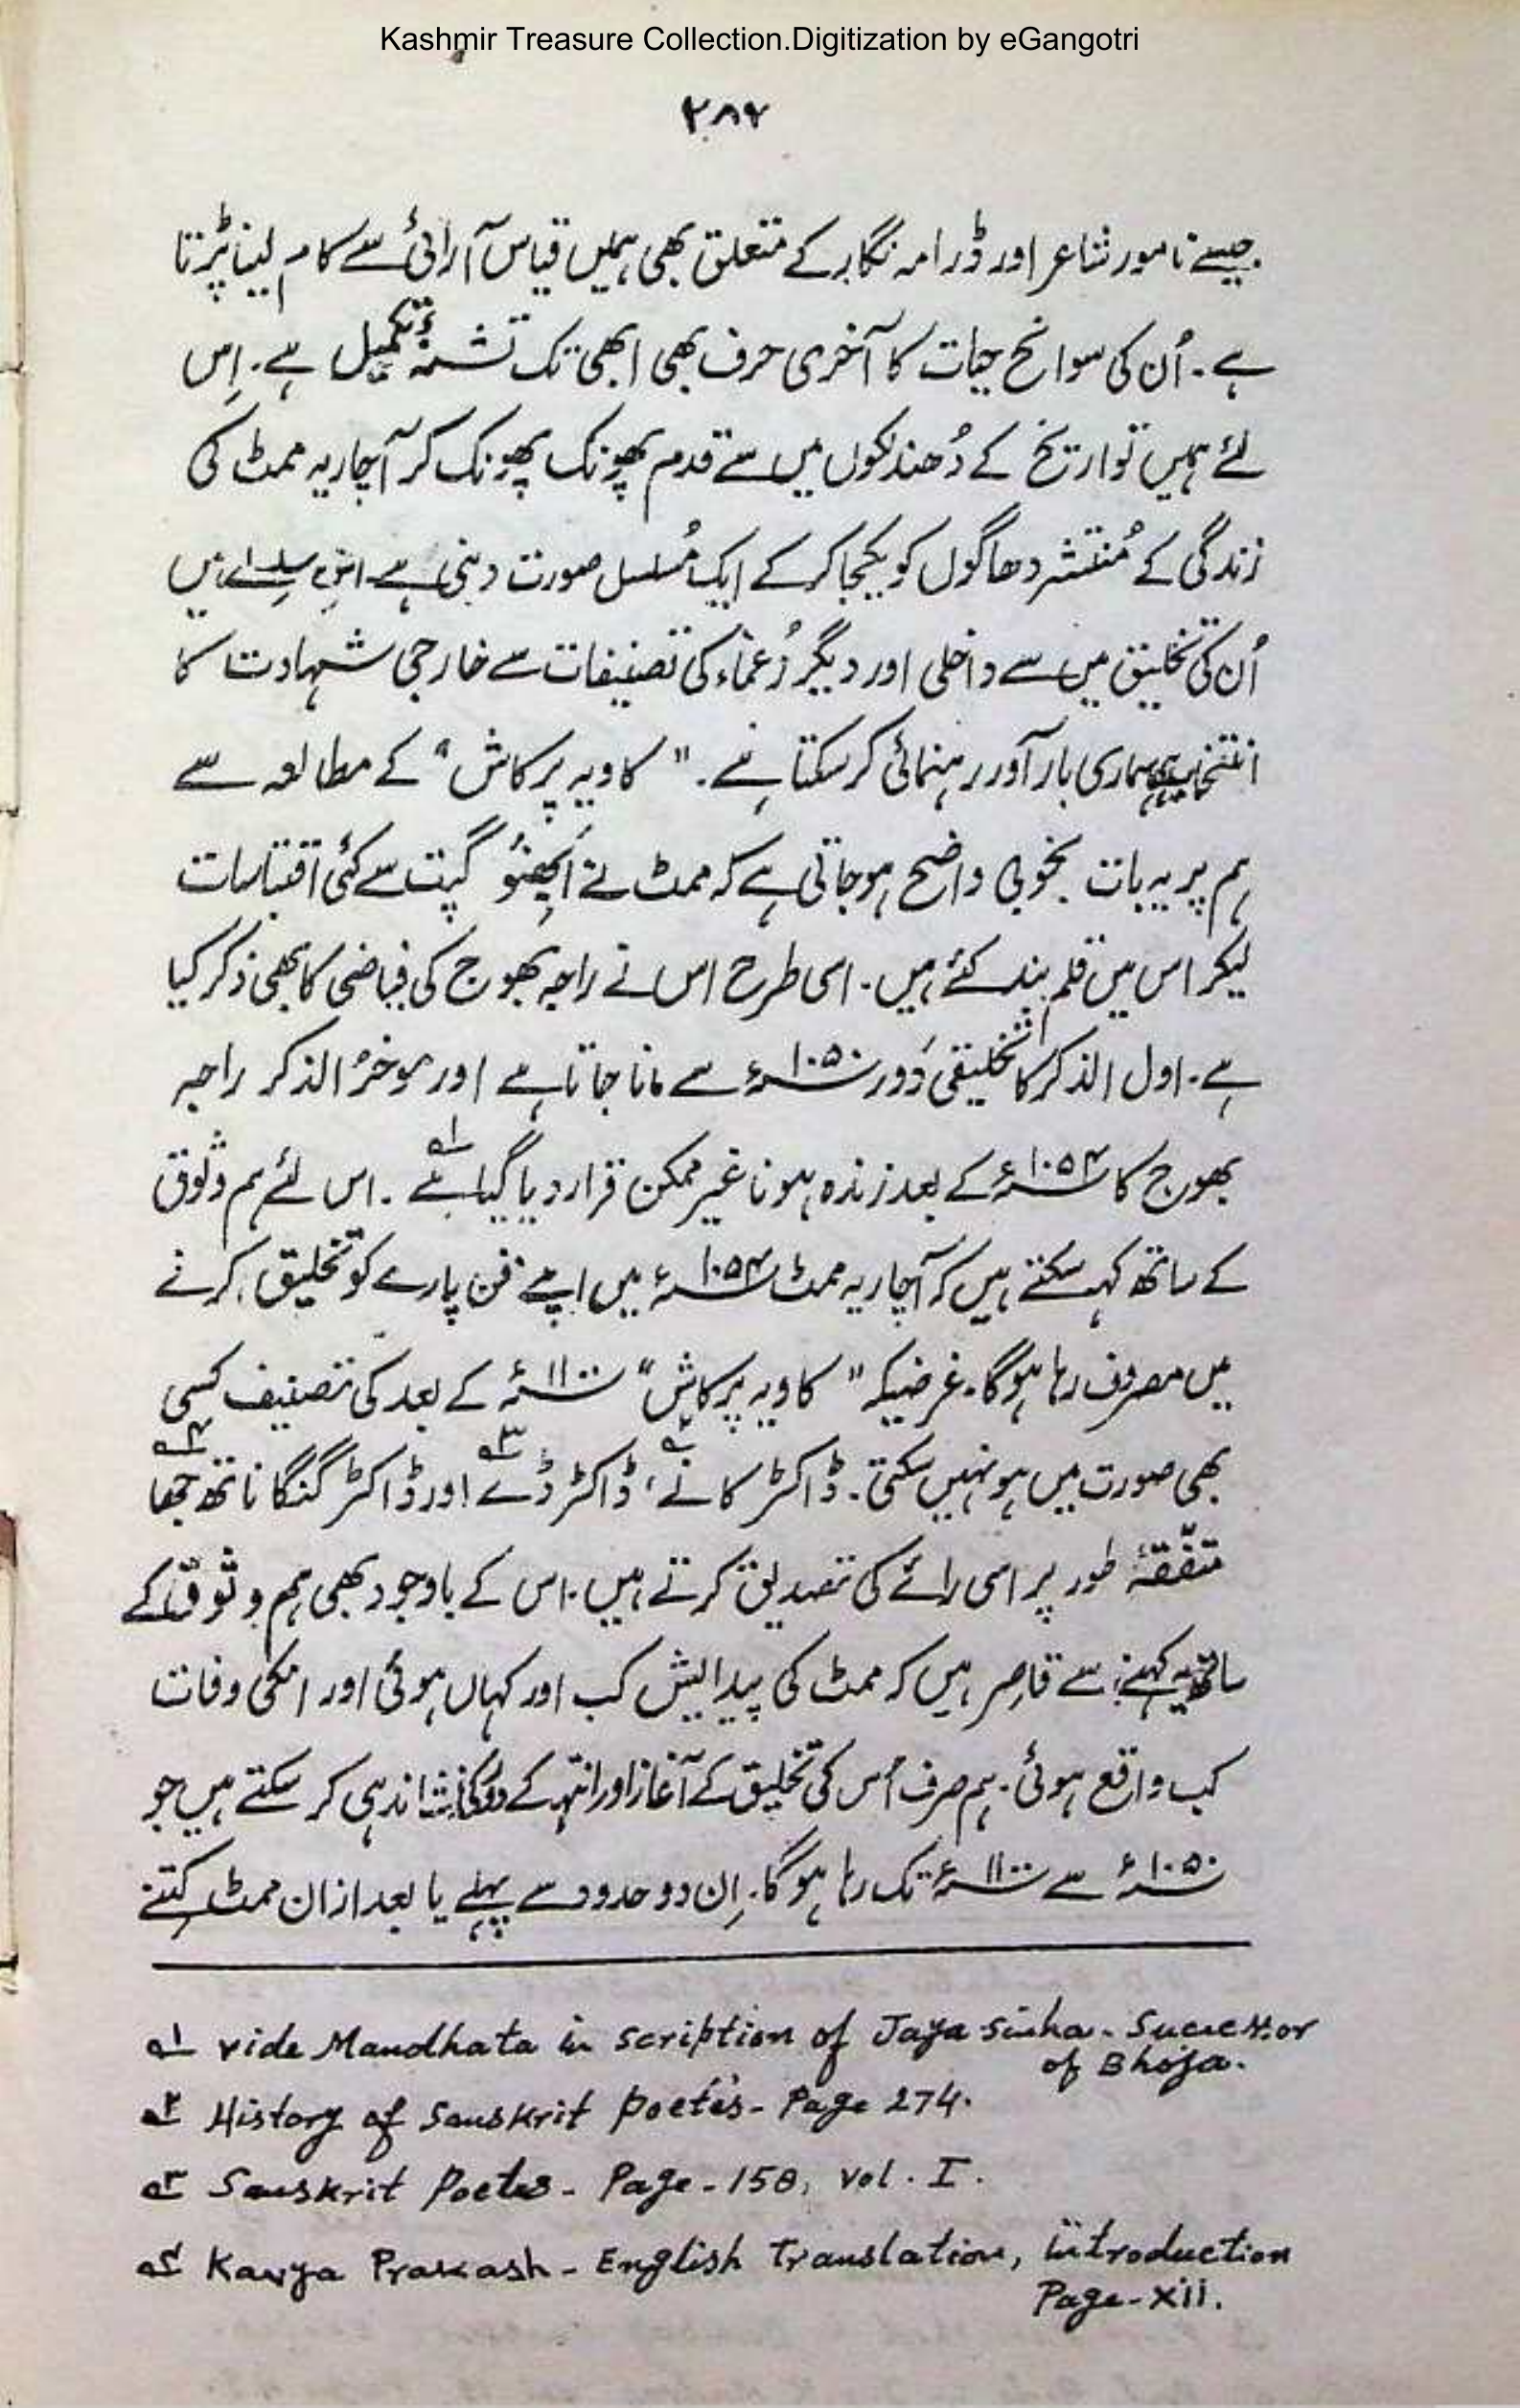 Kashmir Treasure Collection.Digitization by eGangotri
۲۸۷
جیسے نامور شاعر اور ڈرامہ نگار کے متعلق بھی ہمیں قیاس آرائی سے کام لینا پڑتا
ہے۔ اُن کی سوانح حیات کا آخری حرف بھی ابھی تک تشنۂ تکمیل ہے۔ اِس
لئے ہمیں تواریخ کے دُھندلکوں میں سے قدم پھونک پھونک کر آچاریہ ممٹ کی
زندگی کے مُنتشر دھاگوں کو یکجا کر کے ایک مُسلسل صورت دینی ہے۔ اس سلسلے میں
اُن کی تخلیق میں سے داخلی اور دیگر زُعماء کی تصنیفات سے خارجی شہادت کا
انتخاب ہی ہماری بار آور رہنمائی کر سکتا ہے۔ "کاویہ پرکاش" کے مطالعہ سے
ہم پر یہ بات بخوبی واضح ہو جاتی ہے کہ ممٹ نے اَبھِنوُ گپت سے کئی اقتباسات
لیکر اس میں قلم بند کئے ہیں۔ اسی طرح اس نے راجہ بھوج کی فیاضی کا بھی ذکر کیا
ہے۔ اول الذکر کا تخلیقی دَور ۱۰۵۰ء سے مانا جاتا ہے اور موخرُ الذکر راجہ
بھوج کا ۱۰۵۴ء کے بعد زندہ ہونا غیر ممکن قرار دیا گیا ہے ؂۱۔ اس لئے ہم وثوق
کے ساتھ کہہ سکتے ہیں کہ آچاریہ ممٹ ۱۰۵۴ء میں اپنے فن پارے کو تخلیق کرنے
میں مصروف رہا ہوگا۔ غرضیکہ "کاویہ پرکاش" ۱۱۰۰ء کے بعد کی تصنیف کسی
بھی صورت میں ہو نہیں سکتی۔ ڈاکٹر کانے ؂۲، ڈاکٹر ڈے ؂۳ اور ڈاکٹر گنگا ناتھ جھا ؂۴
متفّقہٗ طور پر اسی رائے کی تصدیق کرتے ہیں۔ اس کے باوجود بھی ہم وثوق کے
ساتھ یہ کہنے سے قاصِر ہیں کہ ممٹ کی پیدایش کب اور کہاں ہوئی اور انکی وفات
کب واقع ہوئی۔ ہم صرف اُس کی تخلیق کے آغاز اور انتہا کے دَور کی نشاندہی کر سکتے ہیں جو
۱۰۵۰ء سے ۱۱۰۰ء تک رہا ہوگا۔ اِن دو حدود سے پہلے یا بعد ازاں ممٹ کِتنے
؂۱ vide Mandhata in scription of Jaya sinha - Successor
of Bhoja.
؂۲ History of Sanskrit poeties - Page 274.
؂۳ Sanskrit Poetes - Page - 158, Vol. I.
؂۴ Kavya Prakash - English Translation, introduction
Page - xii.